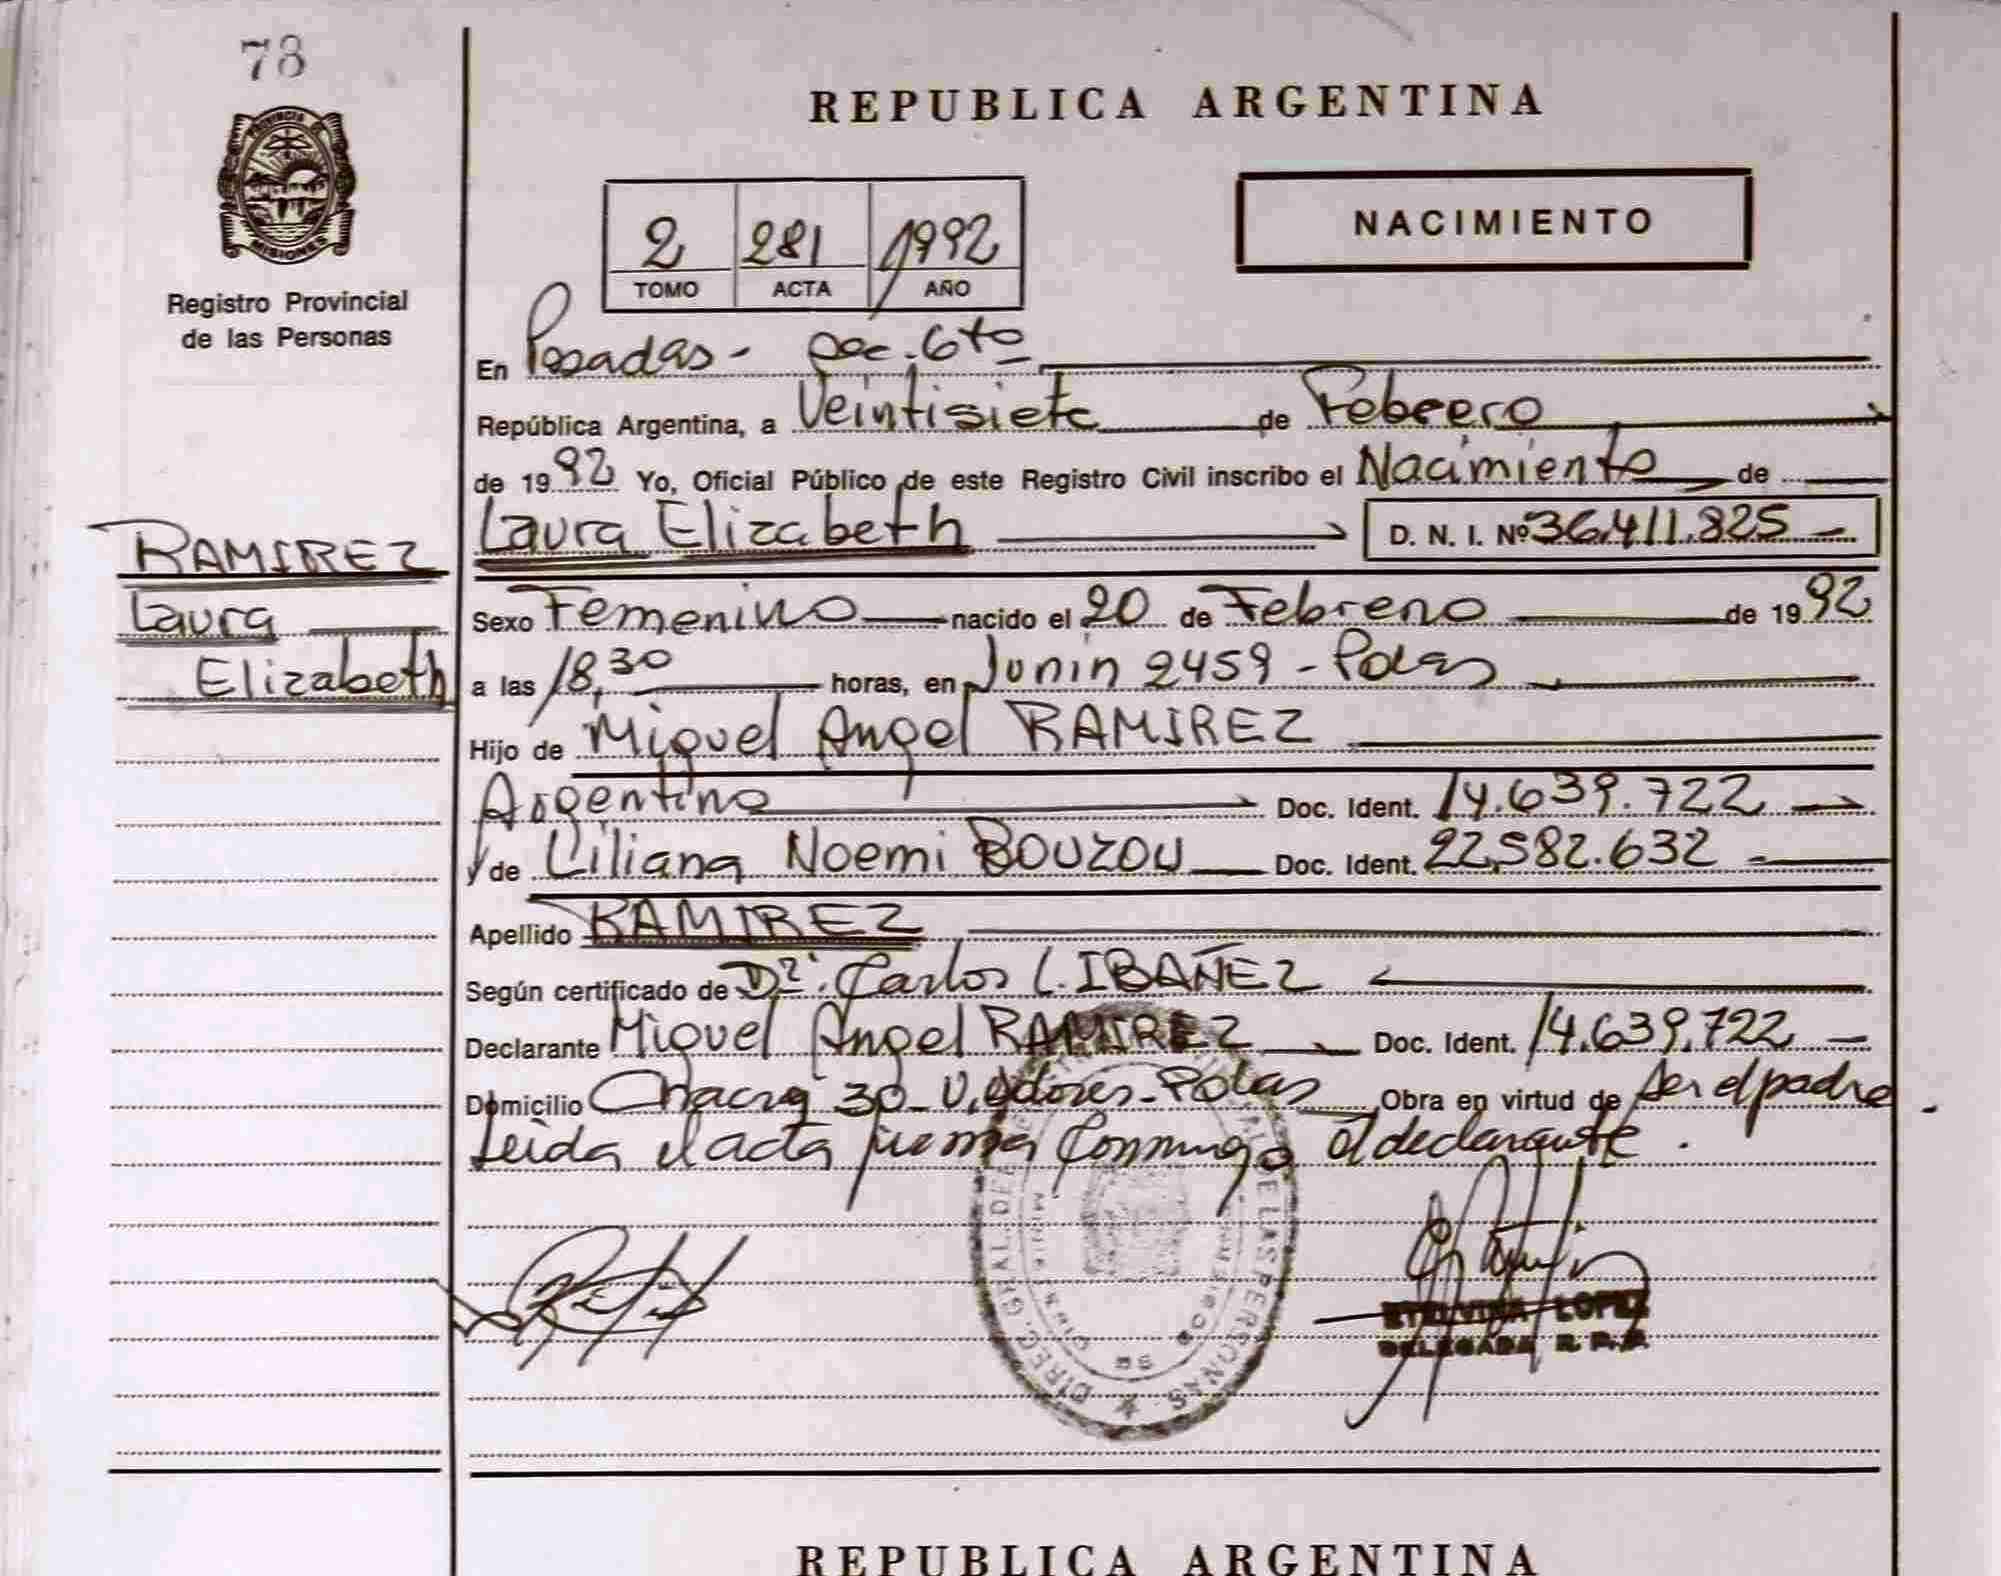 78
PROVINCIA DE
MISIONES
Registro Provincial
de las Personas
RAMIREZ
Laura
Elizabeth
REPUBLICA ARGENTINA
2 281 1992
TOMO ACTA AÑO
NACIMIENTO
En Posadas - Sec. 6to
República Argentina, a Veintisiete de Febrero
de 1992 Yo, Oficial Público de este Registro Civil inscribo el Nacimiento de
Laura Elizabeth D. N. I. Nº 36.411.825
Sexo Femenino nacido el 20 de Febrero de 1992
a las 18,30 horas, en Junin 2459 - Pdas
Hijo de Miguel Angel RAMIREZ
Argentino Doc. Ident. 14.639.722
y de Liliana Noemi BOUZOU Doc. Ident. 22.582.632
Apellido RAMIREZ
Según certificado de Dr. Carlos L. IBAÑEZ
Declarante Miguel Angel RAMIREZ Doc. Ident. 14.639.722
Domicilio Chacra 30 - Pdas Obra en virtud de ser el padre
Leida el acta firma conmigo el declarante.
DIREC. GRAL. DE LAS PERSONAS
MISIONES
ETELVINA LOPEZ
DELEGADA R. P. P.
REPUBLICA ARGENTINA